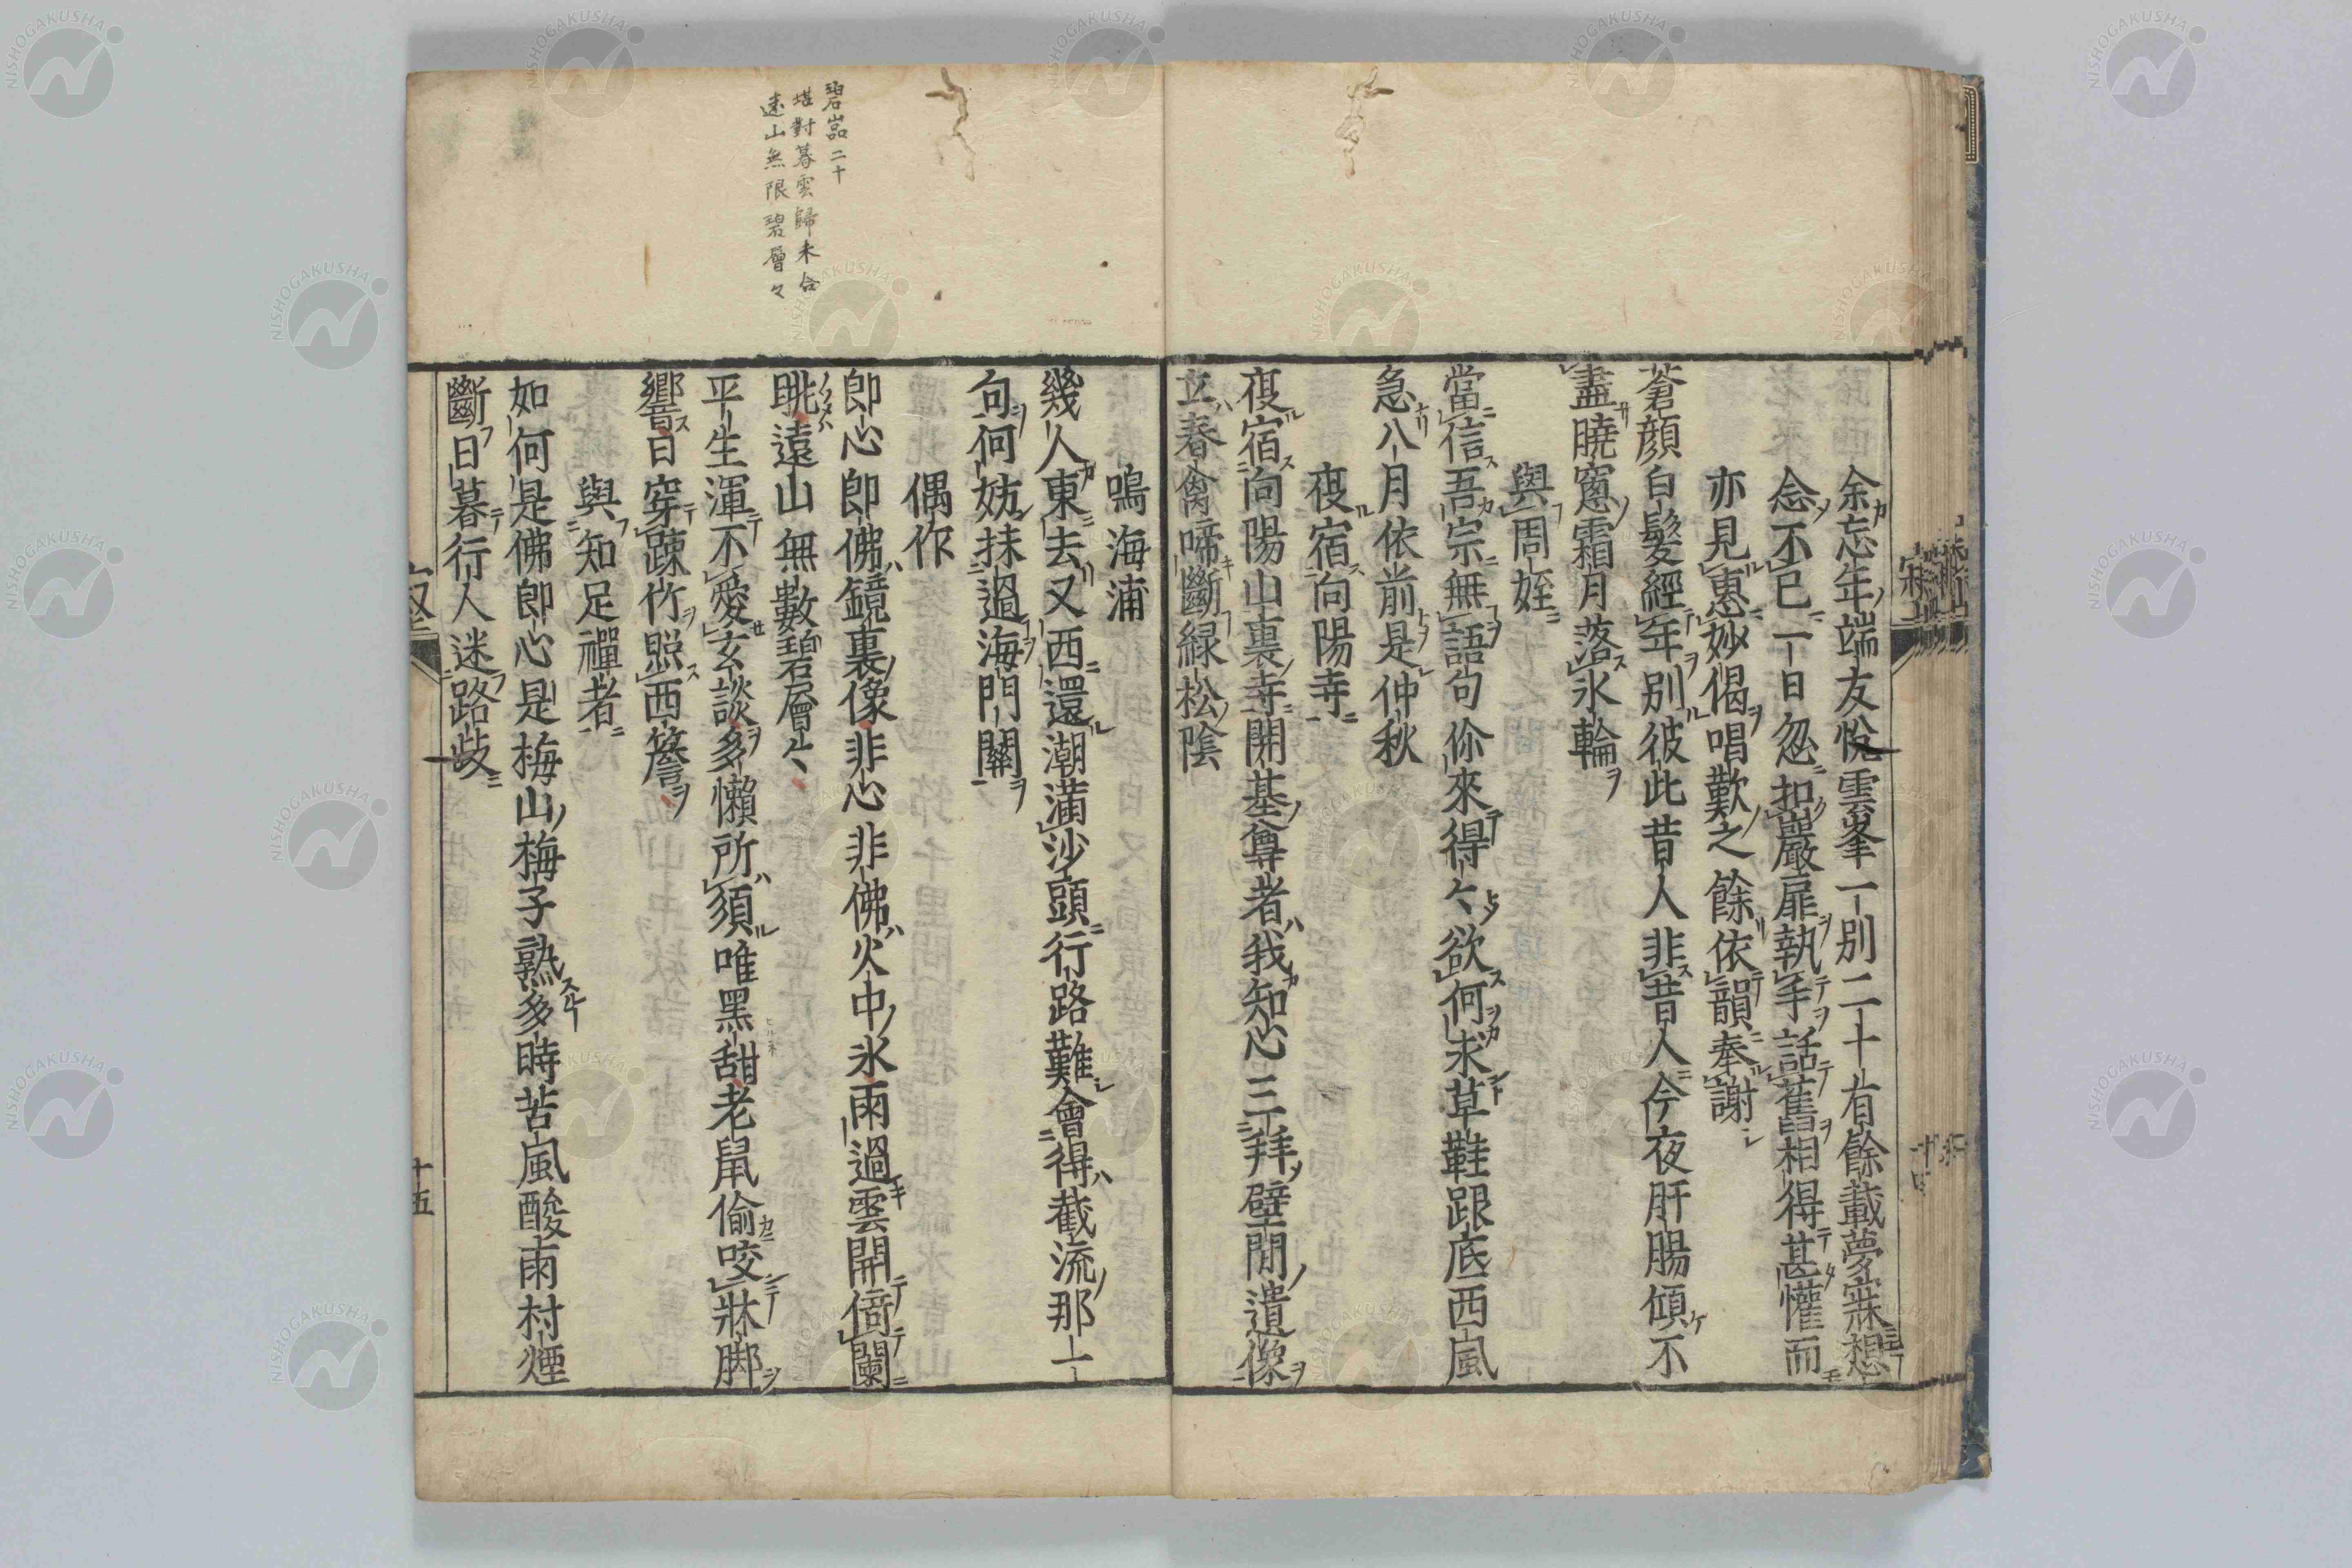 余忘年端友悅雲峯一別二十有餘載夢寐想
念不已一日忽扣巖扉執手話舊相得甚懽而
亦見惠妙偈唱歎之餘依韻奉謝
蒼顏白髮經年別彼此昔人非昔人今夜肝腸傾不
盡曉窻霜月落氷輪
與周姪
當信吾宗無語句你來得得欲何求草鞋跟底西風
急八月依前是仲秋
夜宿向陽寺
夜宿向陽山裏寺開基尊者我知心三拜壁間遺像
立春禽啼斷綠松陰
鳴海浦
幾人東去又西還潮滿沙頭行路難會得截流那一
句何妨抹過海門關
偶作
即心即佛鏡裏像非心非佛火中氷雨過雲開倚闌
眺遠山無數碧層層
平生渾不愛玄談多懶所須唯黑甜老鼠偷咬牀脚
響日穿疎竹照西簷
與知足禪者
如何是佛即心是梅山梅子熟多時苦風酸雨村煙
斷日暮行人迷路歧
碧嵓二十
堪對暮雲歸未合
遠山無限碧層々
十五
NISHOGAKUSHA